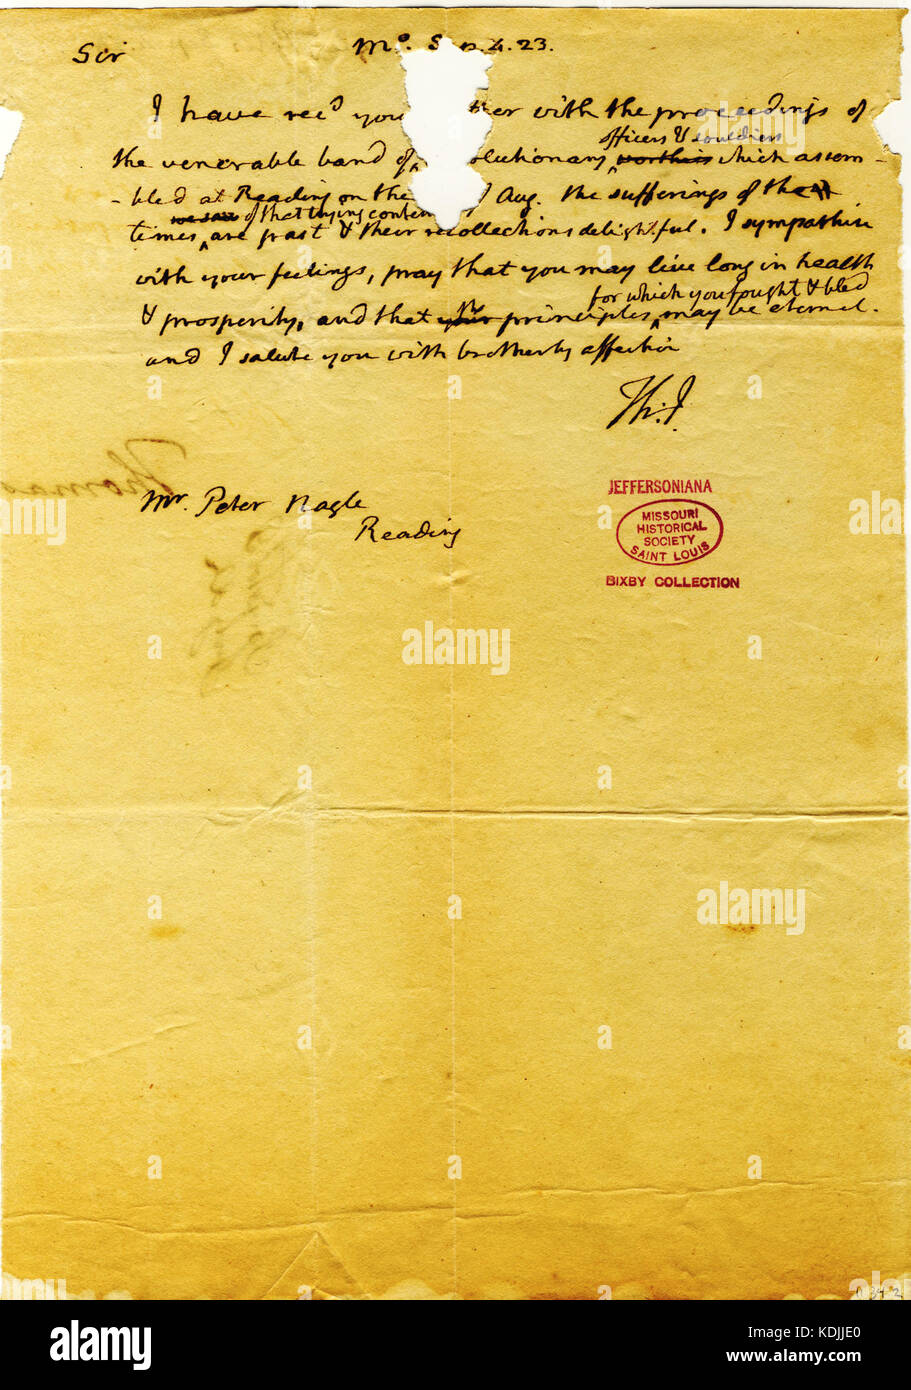 Sir
Mo. Sep. 4. 23.
I have recd you ter with the proceedings of
officers & souldiers
the venerable band of olutionary worthies which assem-
-bled at Reading on the of Aug. the sufferings of the
of that trying
times are past & their recollections delightful. I sympathise
with your feelings, pray that you may live long in health
for which you fought & bled
& prosperity, and that your principles may be eternal.
and I salute you with brotherly affection
Th. J.
Thomas
Mr. Peter Nagle
Reading
JEFFERSONIANA
MISSOURI
HISTORICAL
SOCIETY
SAINT LOUIS
BIXBY COLLECTION
alamy
alamy
alamy
alamy stock photo
alamy
Image ID: KDJJE0
www.alamy.com